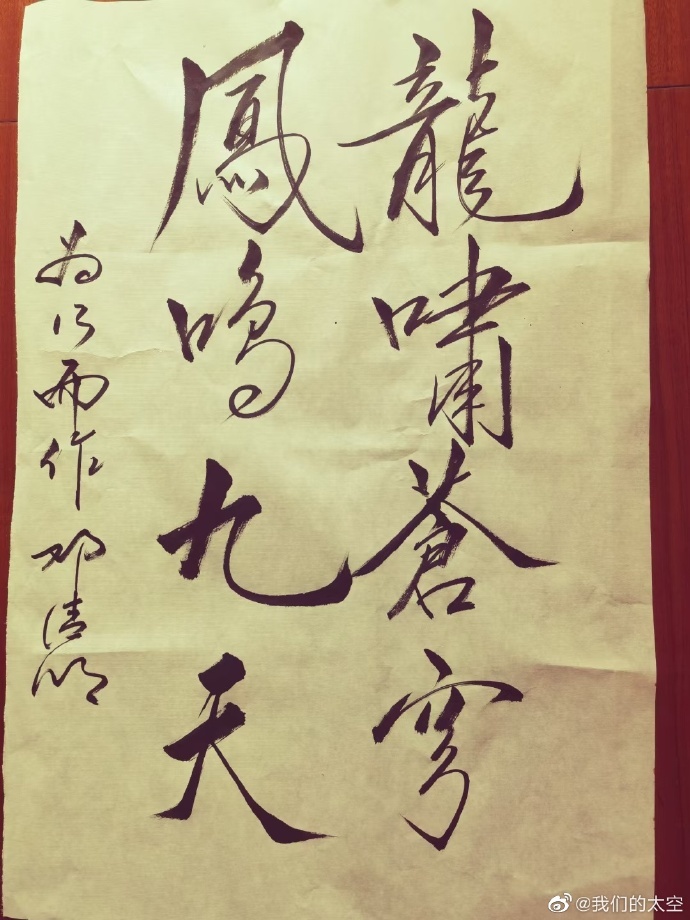 龍嘯蒼穹
鳳鳴九天
而作 邓清明
@我们的太空